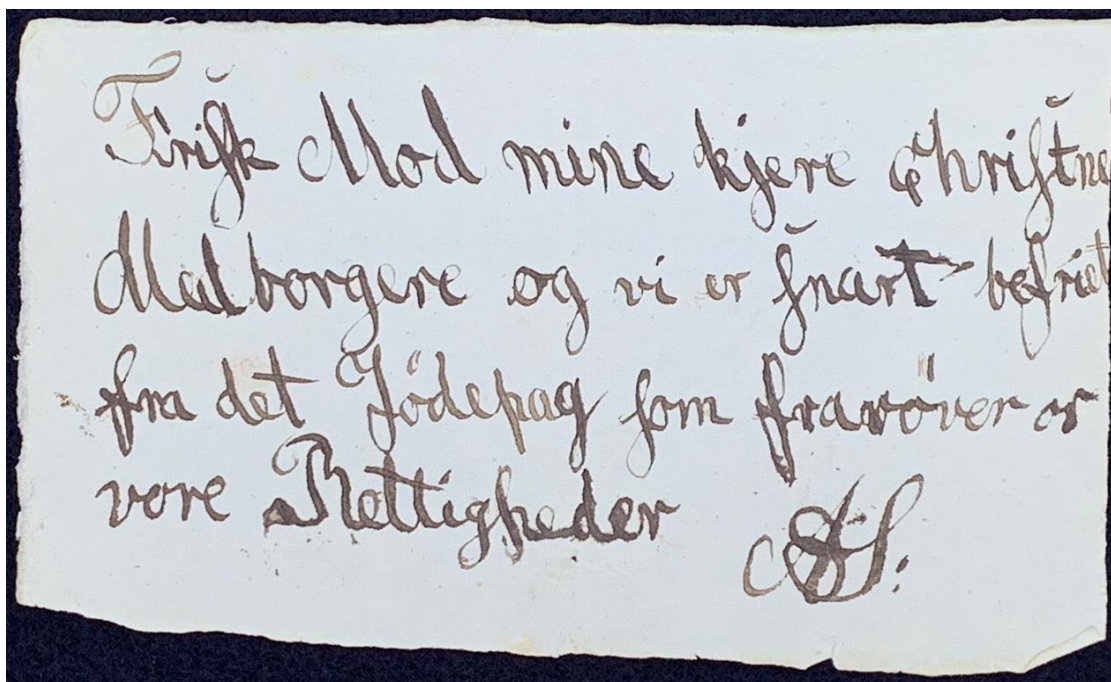 Frisk Mod mine kjere Christne
Medborgere og vi er snart befriet
fra det Jödepag som fraröver os
vore Rettigheder